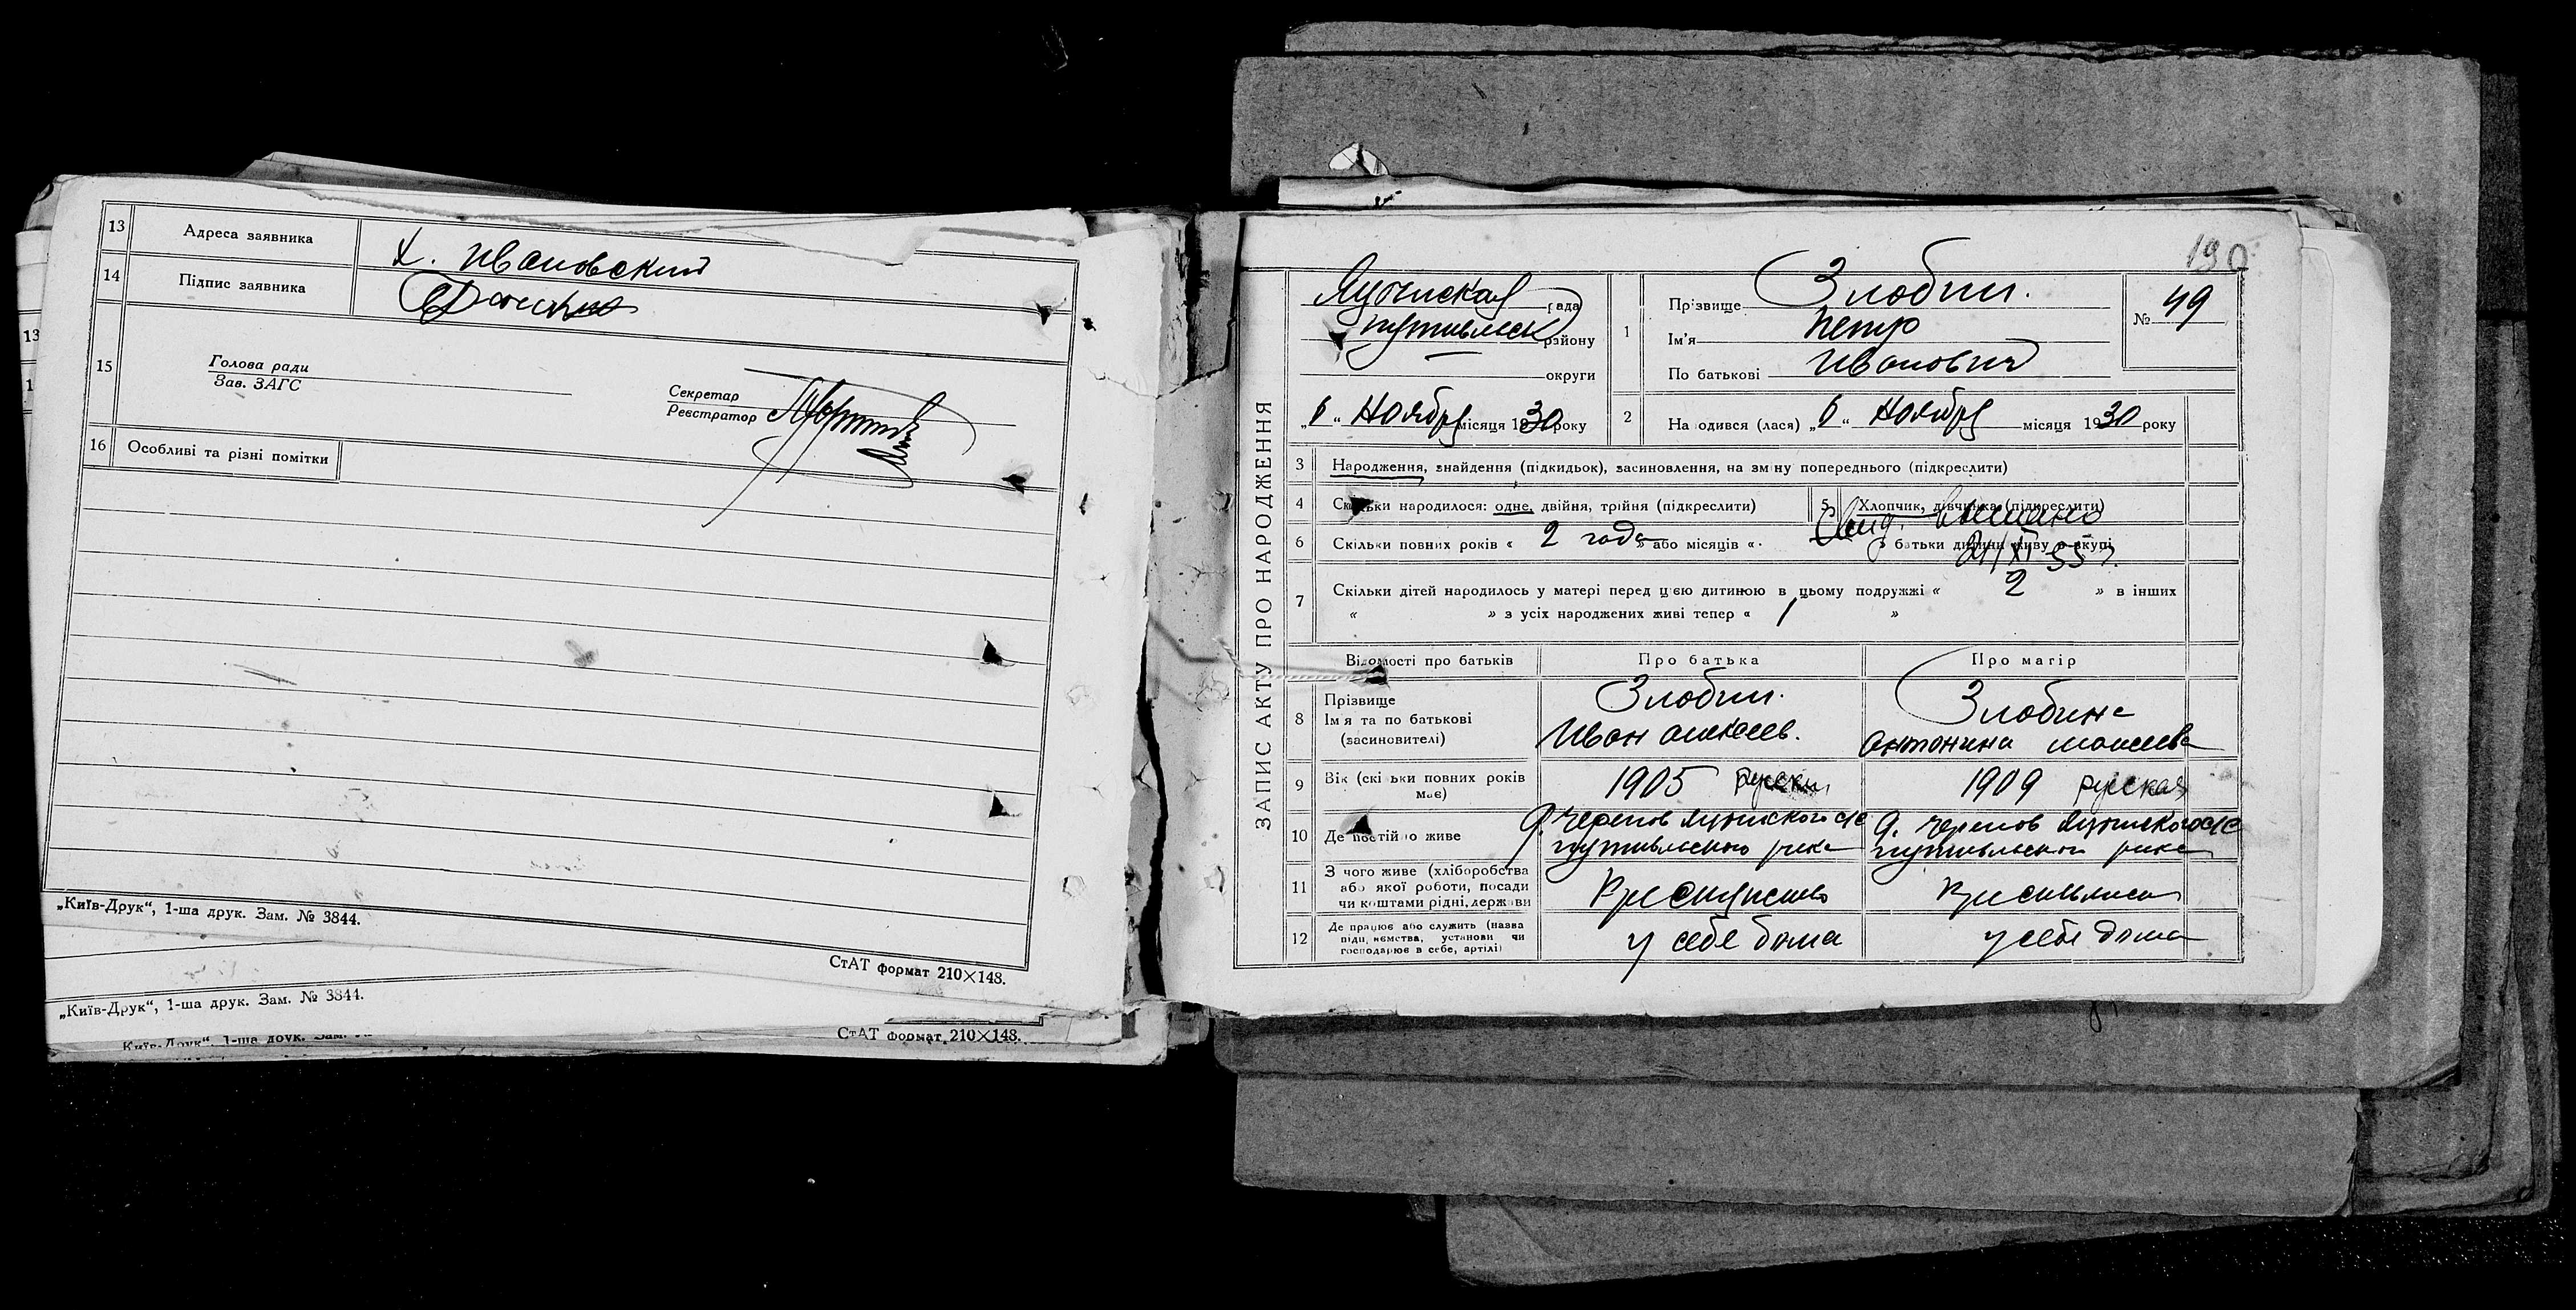 13 Адреса заявника х. Ивановский
14 Підпис заявника
15 Голова ради
Зав. ЗАГС
Секретар
Реєстратор
16 Особливі та різні помітки
„Київ-Друк“, 1-ша друк. Зам. № 3844.
СтАТ формат 210×148.
„Київ-Друк“, 1-ша друк. Зам. № 3844.
СтАТ формат 210×148.
190
ЗАПИС АКТУ ПРО НАРОДЖЕННЯ
рада
путивльск району
— округи
„6“ Ноября місяця 1930 року
1 Прізвище Злобин.
Ім'я Петр
По батькові Иванович
№ 49
2 Народився (лася) „6“ Ноября місяця 1930 року
3 Народження, знайдення (підкидьок), засиновлення, на зміну попереднього (підкреслити)
4 Скільки народилося: одне, двійня, трійня (підкреслити)
5 Хлопчик, дівчинка (підкреслити)
6 Скільки повних років « 2 года » або місяців « » батьки дитини живу в купі
Свид. выслано
21/XI 55 г.
7 Скільки дітей народилось у матері перед цією дитиною в цьому подружжі « 2 » в інших
« » з усіх народжених живі тепер « 1 »
Відомості про батьків Про батька Про матір
8 Прізвище Імя та по батькові (засиновителі)
Злобин.
Иван Алексеев.
Злобина
Антонина Моисеева
9 Вік (скільки повних років має) 1905 руски 1909 руская
10 Де постійно живе
11 З чого живе (хліборобства або якої роботи, посади чи коштами рідні, держави
12 Де працює або служить (назва підприємства, установи чи господарює в себе, артілі)
у себе дома
у себе дома